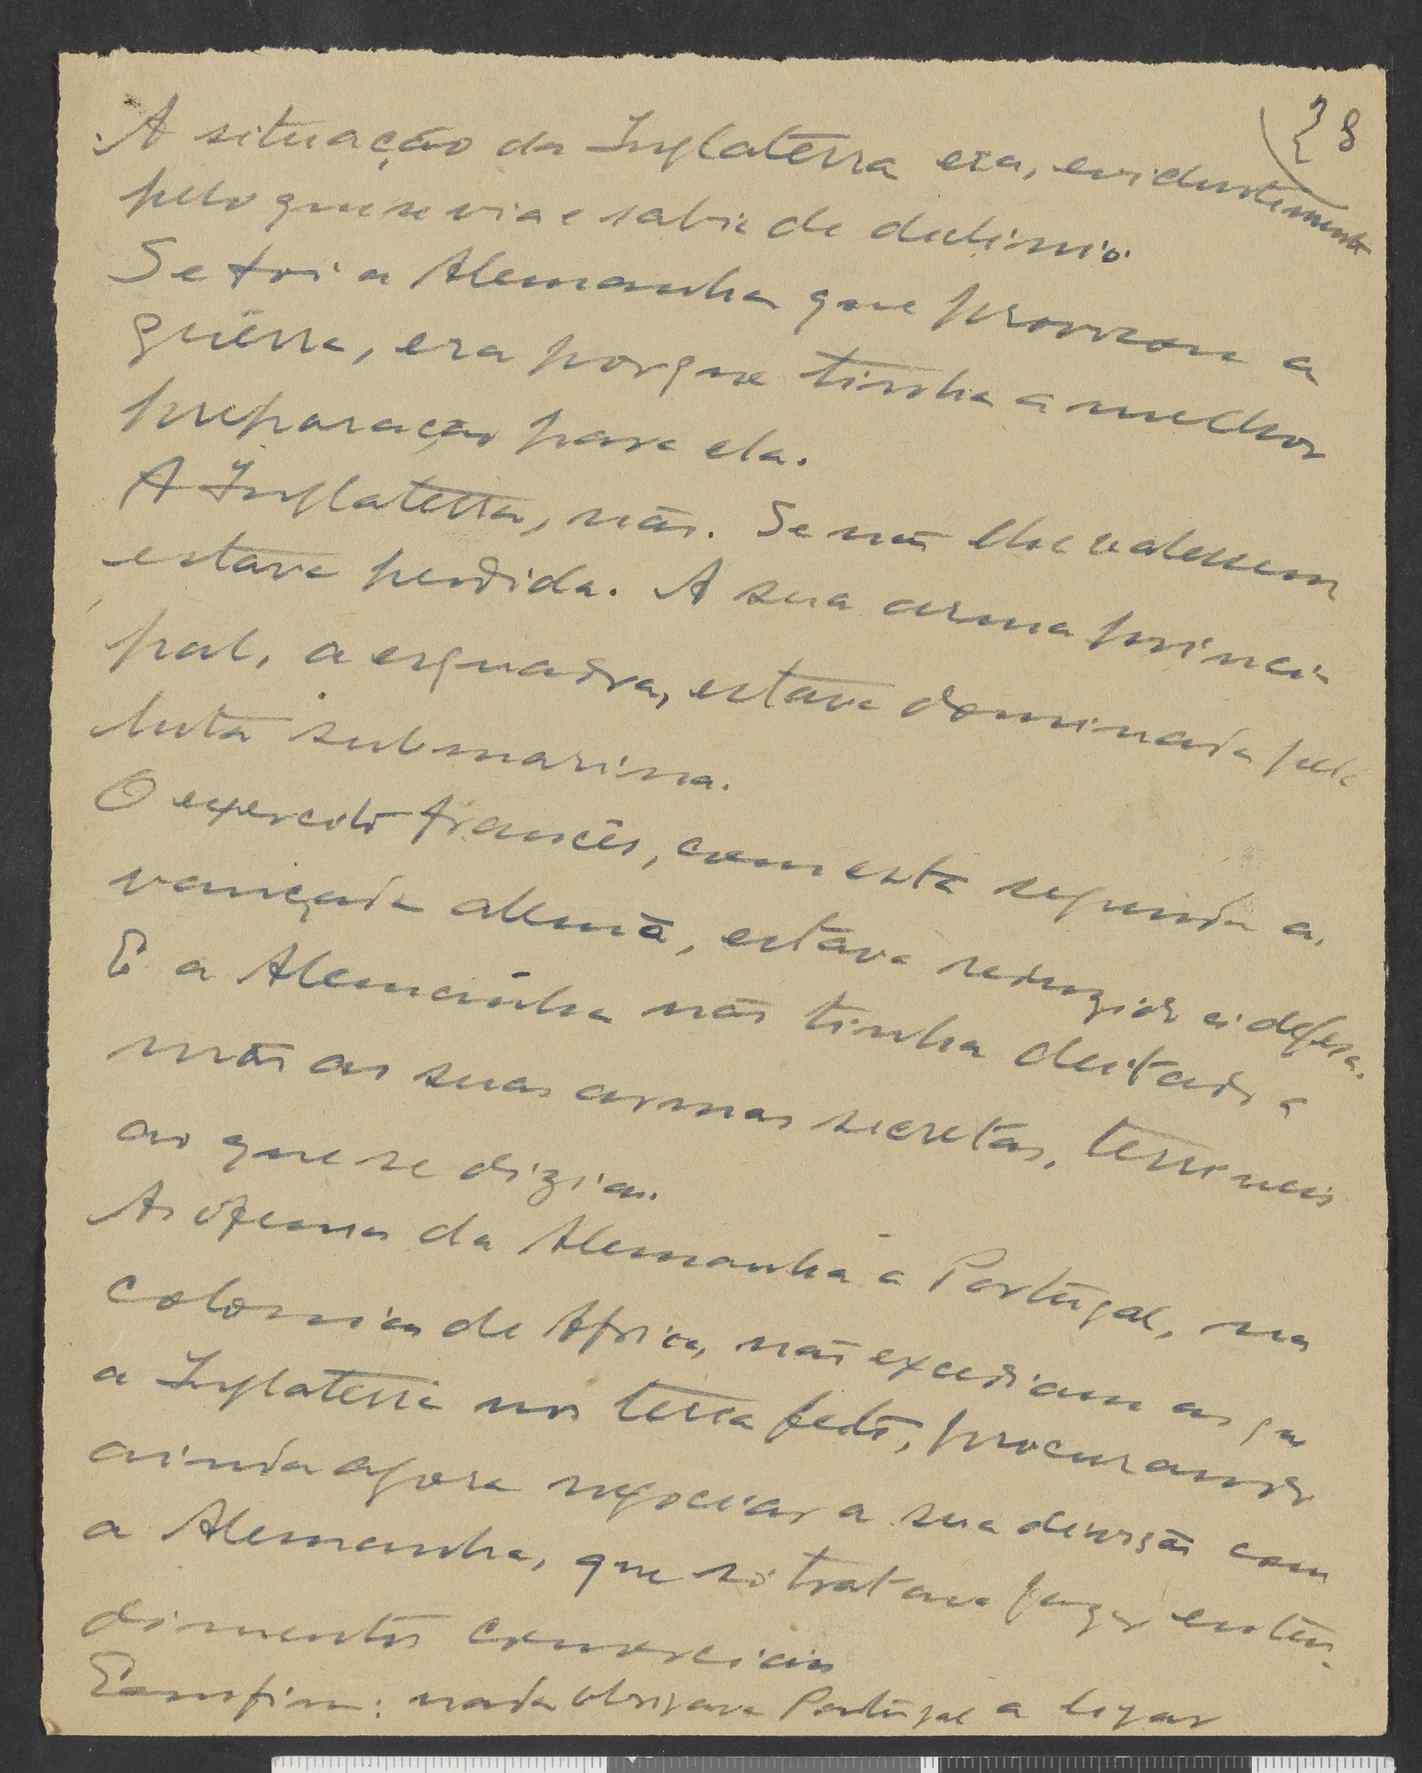 28
A situação da Inglaterra era, evidentemente
pelo que se via e sabia de declinio.
Se foi a Alemanha que provocou a
guerra, era porque tinha a melhor
preparação para ela.
A Inglaterra, não. Se não lhe valessem
estava perdida. A sua arma princi-
pal, a esquadra, estava dominada pela
luta submarina.
O exercito francês, com esta segunda a-
vançada alemã, estava reduzido á defesa.
E a Alemanha não tinha deitado a
mão as suas armas secretas, terriveis
ao que se dizia.
As ofensas da Alemanha a Portugal, nas
colonias de Africa, não excediam as que
a Inglaterra nos tem feito, procurando
ainda agora negociar a sua divisão com
a Alemanha, que só tratava fazer enten-
dimentos comerciais
Emfim: nada obrigava Portugal a ligar